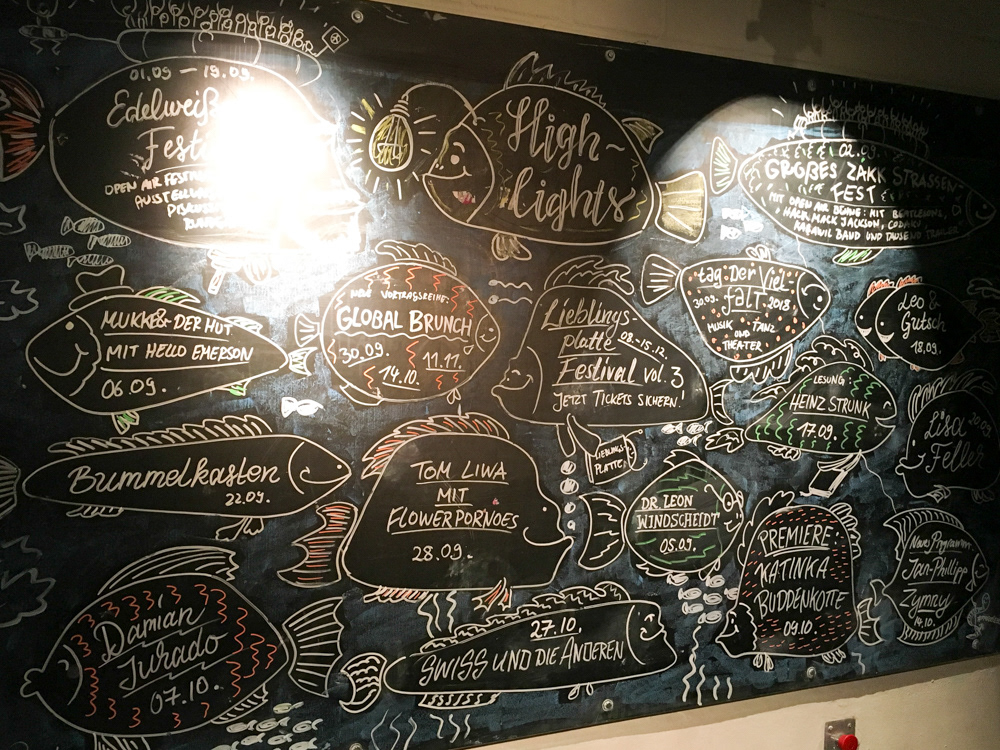 01.09. – 19.09.
Edelweiß
Fest
OPEN AIR FESTI
AUSSTELLU
High-
Lights
02.09.
GROßES ZAKK STRASSEN-
FEST
MIT OPEN AIR BÜHNE: MIT
MACK JACKSON,
BAND UND TAUSEND
MUKKE & DER HUT
MIT HELLO EMERSON
06.09.
NEUE VORTRAGSREIHE:
GLOBAL BRUNCH
30.09.
11.11.
14.10.
Lieblings-
platte 08.-15.12.
Festival VOL. 3
JETZT TICKETS SICHERN!
LIEBLINGS
PLATTE
tag DER Viel-
30.09. falt 2018
MUSIK TANZ
UND
THEATER
Leo &
Gutsch
18.09.
LESUNG:
HEINZ STRUNK
17.09.
Lisa 20.09.
Feller
Bummelkasten
22.09.
TOM LIWA
MIT
FLOWERPORNOES
28.09.
DR. LEON
WINDSCHEIDT
05.09.
PREMIERE
KATINKA
BUDDENKOTTE
09.10.
Neues Programm
Jan-Philipp
Zymny
14.10.
Damian
Jurado
07.10.
27.10.
SWISS UND DIE ANDEREN